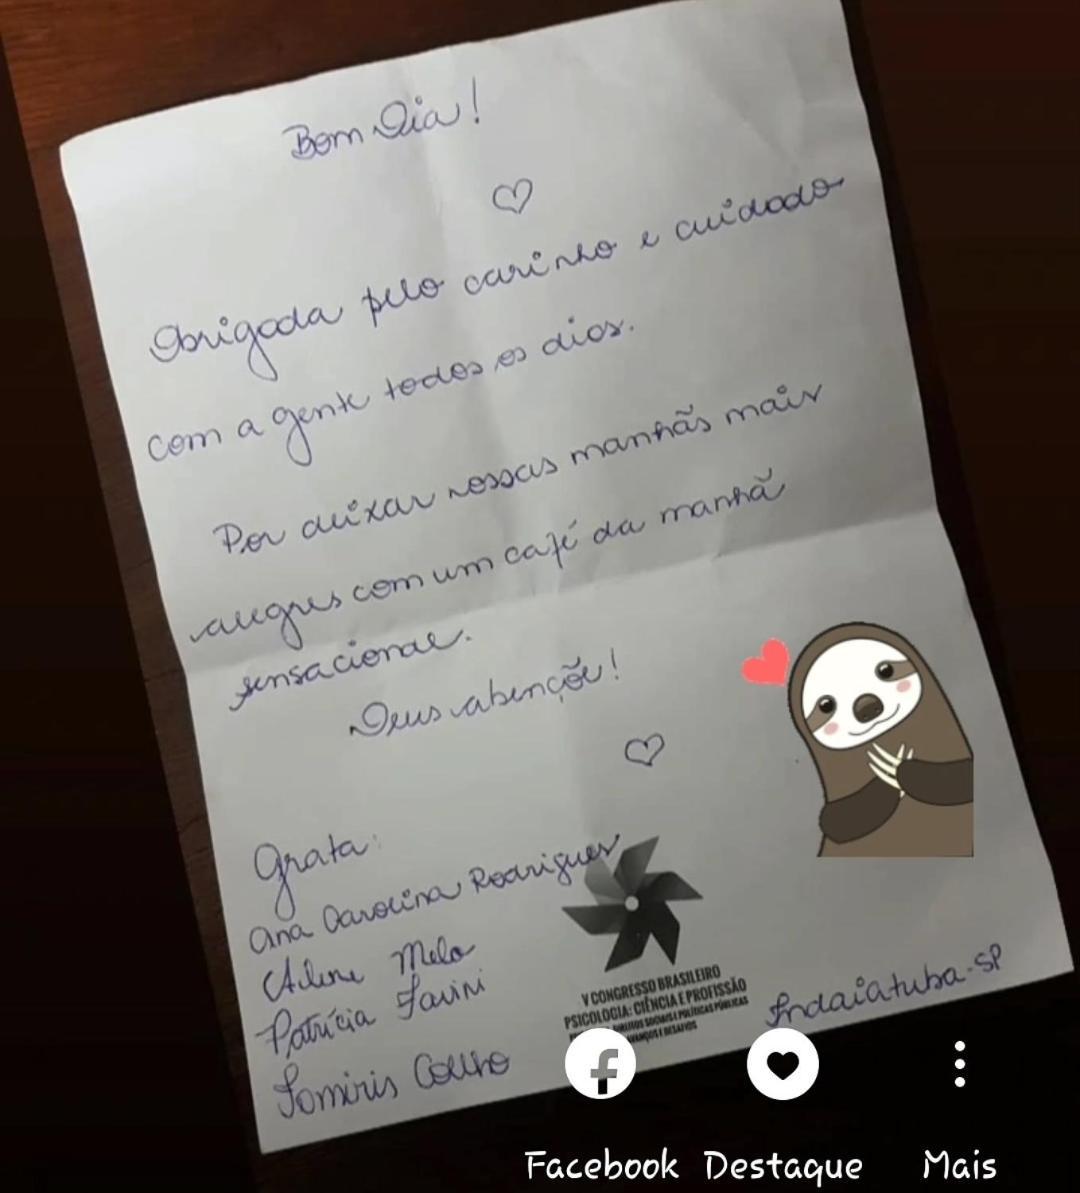 Bom Dia!
Obrigada pelo carinho e cuidado
com a gente todos os dias.
Por deixar nossas manhãs mais
alegres com um café da manhã
sensacional.
Deus abençõe!
Grata:
Ana Carolina Rodrigues
Patrícia Favini
Coelho
Melo
V CONGRESSO BRASILEIRO
PSICOLOGIA: CIÊNCIA E PROFISSÃO
DIREITOS SOCIAIS E POLÍTICAS PÚBLICAS
AVANÇOS E DESAFIOS
Indaiatuba-SP
Facebook Destaque Mais